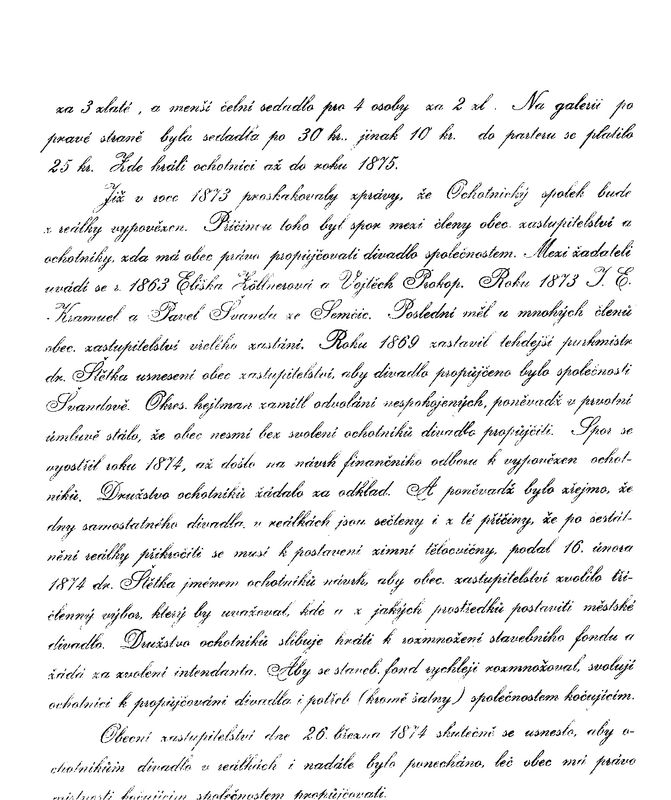 za 3 zlaté, a menší čelní sedadlo pro 4 osoby za 2 zl. Na galerii po
pravé straně byla sedadla po 30 kr., jinak 10 kr. do parteru se platilo
25 kr. Zde hráli ochotníci až do roku 1875.
Již v roce 1873 proskakovaly zprávy, že Ochotnický spolek bude
z reálky vypovězen. Příčinou toho byl spor mezi členy obec. zastupitelství a
ochotníky, zda má obec právo propůjčovati divadlo společnostem. Mezi žadateli
uvádí se r. 1863 Eliška Zöllnerová a Vojtěch Prokop. Roku 1873 J. E.
Kramuel a Pavel Švanda ze Semčic. Poslední měl u mnohých členů
obec. zastupitelství vřelého zastání. Roku 1869 zastavil tehdejší purkmistr
dr. Štětka usnesení obec zastupitelství, aby divadlo propůjčeno bylo společnosti
Švandově. Okres. hejtman zamítl odvolání nespokojených, poněvadž v prvotní
úmluvě stálo, že obec nesmí bez svolení ochotníků divadlo propůjčiti. Spor se
vyostřil roku 1874, až došlo na návrh finančního odboru k vypovězen ochot-
níků. Družstvo ochotníků žádalo za odklad. A poněvadž bylo zřejmo, že
dny samostatného divadla v reálkách jsou sečteny i z té příčiny, že po sestát-
nění reálky přikročiti se musí k postavení zimní tělocvičny, podal 16. února
1874 dr. Štětka jménem ochotníků návrh, aby obec. zastupitelství zvolilo tří-
členný výbor, který by uvažoval, kde a z jakých prostředků postaviti městské
divadlo. Družstvo ochotníků slibuje hráti k rozmnožení stavebního fondu a
žádá za zvolení intendanta. Aby se staveb. fond rychleji rozmnožoval, svolují
ochotníci k propůjčování divadla i potřeb (kromě šatny) společnostem kočujícím.
Obecní zastupitelství dne 26. března 1874 skutečně se usneslo, aby o-
chotníkům divadlo v reálkách i nadále bylo ponecháno, leč obec má právo
místnosti kočujícím společnostem propůjčovati.